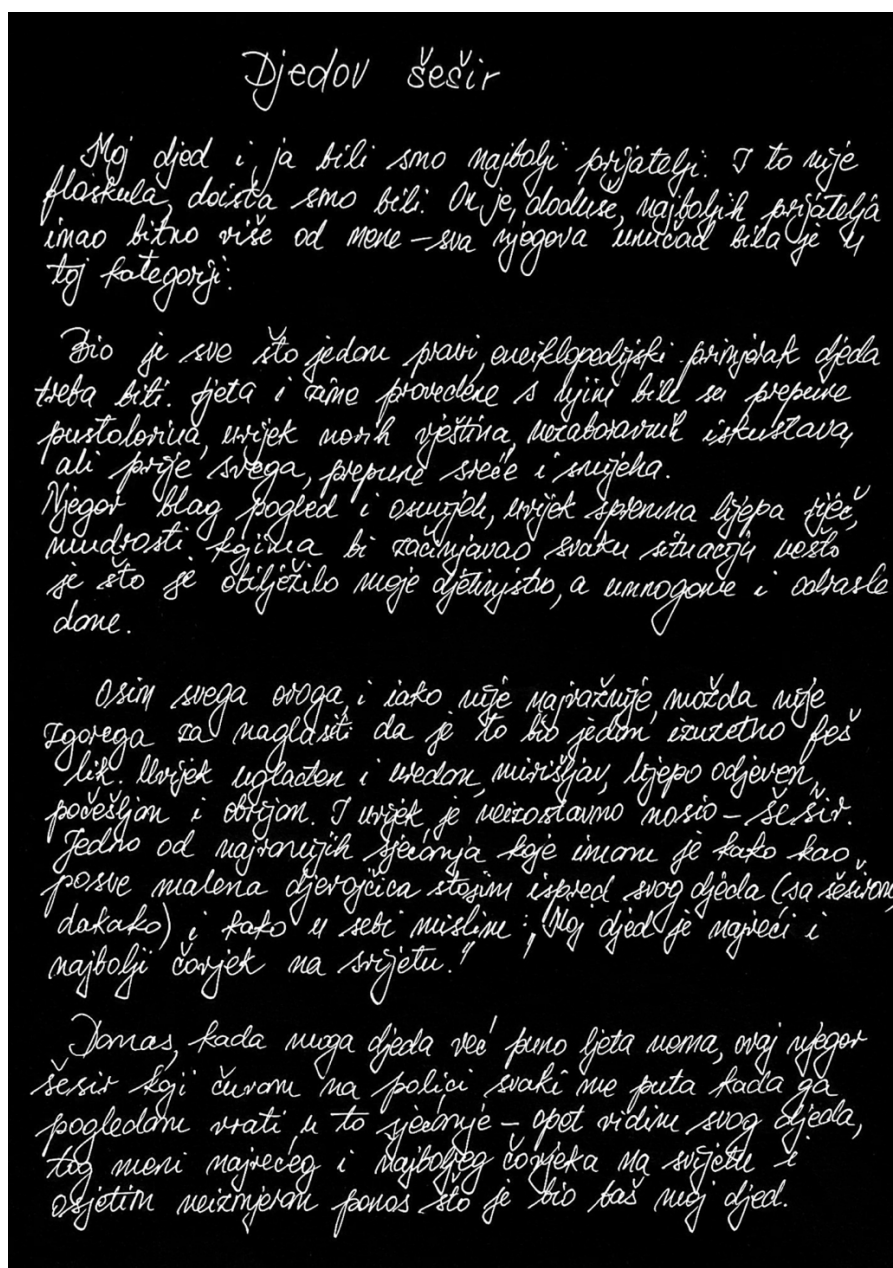 Djedov šešir
Moj djed i ja bili smo najbolji prijatelji. I to nije
floskula, doista smo bili. On je, doduše, najboljih prijatelja
imao bitno više od mene – sva njegova unučad bila je u
toj kategoriji.
Bio je sve što jedan pravi, enciklopedijski primjerak djeda
treba biti. Ljeta i zime provedene s njim bile su prepune
pustolovina, uvijek novih vještina, nezaboravnih iskustava,
ali prije svega, prepune sreće i smijeha.
Njegov blag pogled i osmijeh, uvijek spremna lijepa riječ,
mudrosti kojima bi začinjavao svaku situaciju nešto
je što je obilježilo moje djetinjstvo, a umnogome i odrasle
dane.
Osim svega ovoga, i iako nije najvažnije, možda nije
zgorega za naglasiti da je to bio jedan izuzetno feš
lik. Uvijek uglađen i uredan, mirišljav, lijepo odjeven,
počešljan i obrijan. I uvijek je neizostavno nosio – šešir.
Jedno od najranijih sjećanja koje imam je kako kao
posve malena djevojčica stojim ispred svog djeda (sa šeširom,
dakako) i kako u sebi mislim: „Moj djed je najveći i
najbolji čovjek na svijetu."
Danas, kada moga djeda već puno ljeta nema, ovaj njegov
šešir koji čuvam na polici svaki me puta kada ga
pogledam vrati u to sjećanje – opet vidim svog djeda,
tog meni najvećeg i najboljeg čovjeka na svijetu i
osjetim neizmjeran ponos što je bio baš moj djed.